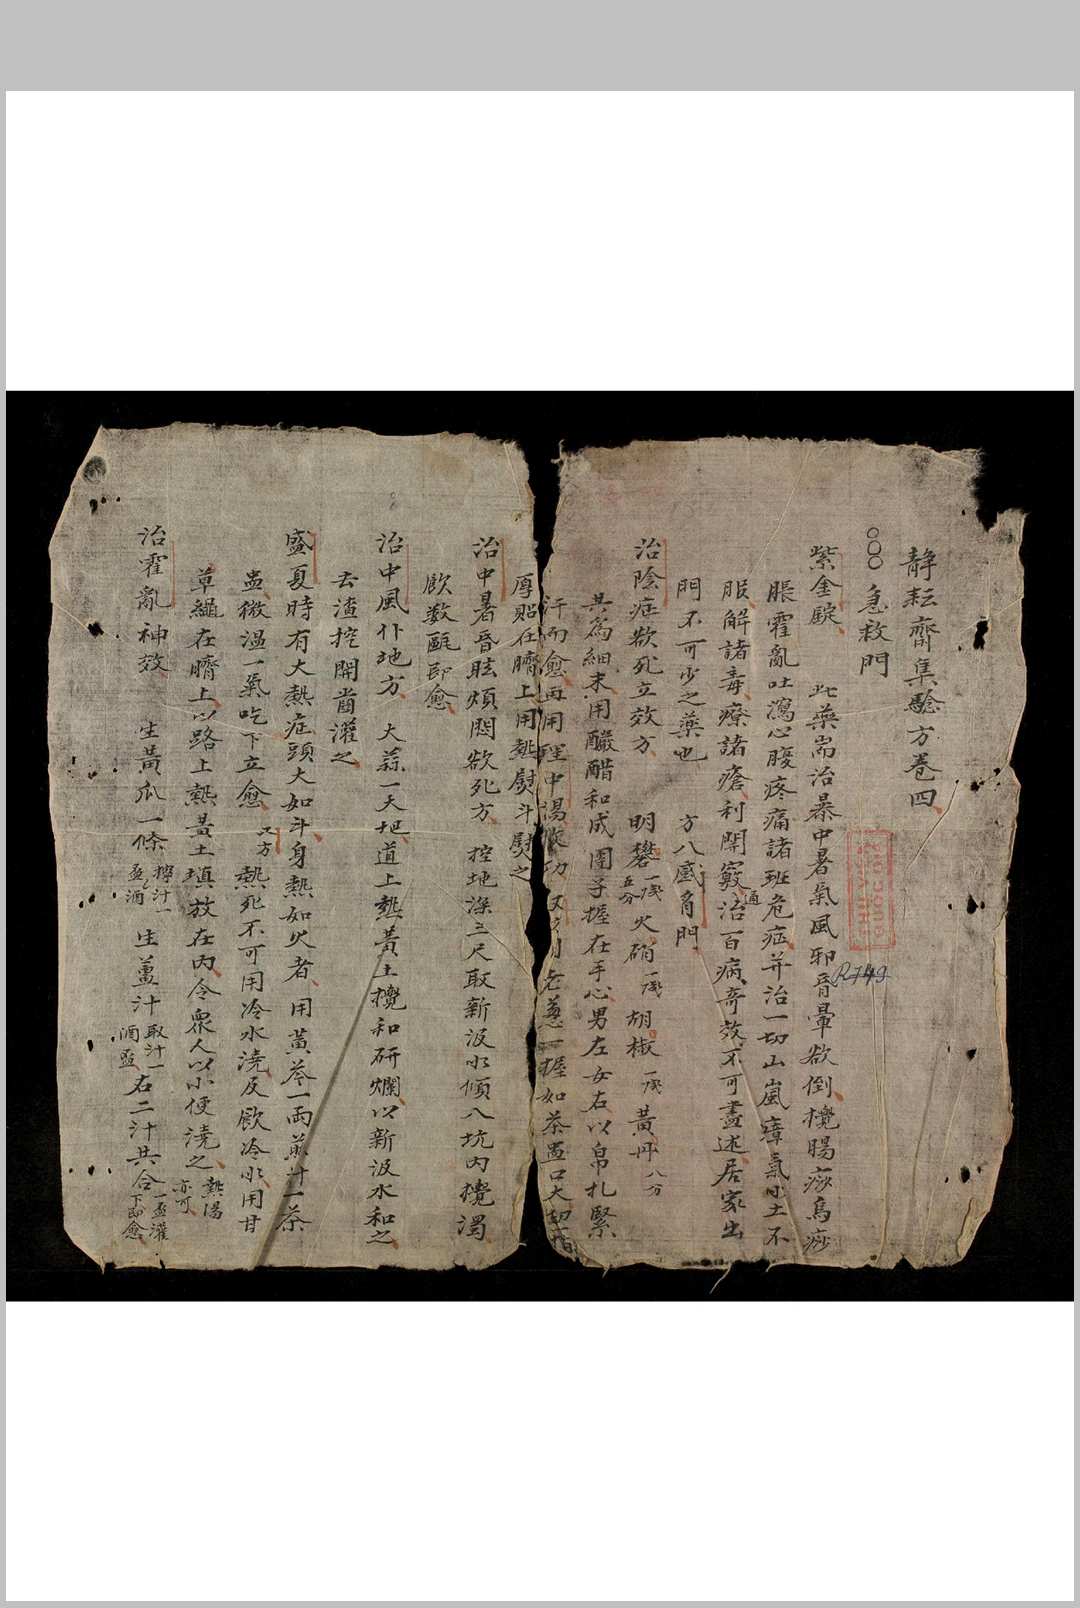 静耘齋集驗方卷四
急救門
紫金錠 此藥耑治暴中暑氣風邪眉暈欲倒攪腸痧烏痧
脹霍亂吐瀉心腹疼痛諸班危症并治一切山嵐瘴氣水土不
服解諸毒療諸瘡利関竅通治百病奇效不可盡述居家出
門不可少之藥也 方八感冒門
治陰症欲死立效方 明礬一戔五分火硝一戔胡椒一戔黃丹八分
共為細末用釅醋和成團子握在手心男左女右以帛扎緊
汗而愈再用理中湯 又 老葱一握如茶盅口大切
厚貼在臍上用熱熨斗熨之
治中暑昏眩煩悶欲死方 挖地深三尺取新汲水傾入坑内攪濁
飲数甌即愈
治中風仆地方 大蒜一大把道上熱黃土攪和研爛以新汲水和之
去渣挖開齒灌之
盛夏時有大熱症頭大如斗身熱如火者用黃芩一兩煎汁一茶
盅微温一氣吃下立愈 又方 熱死不可用冷水澆及飲冷水用甘
草繩在臍上以路上熱黃土填放在内令衆人以小便澆之熱湯亦可
治霍亂神效 生黃瓜一條擰汁一盃酒生薑汁取汁一酒盃右二汁共合一盃灌下即愈
THƯ VIỆN QUỐC GIA
R.749